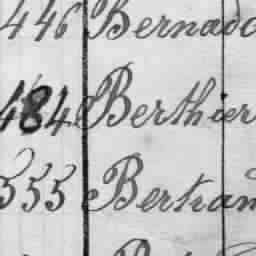 446 Bernado
484 Berthier
555 Bertran